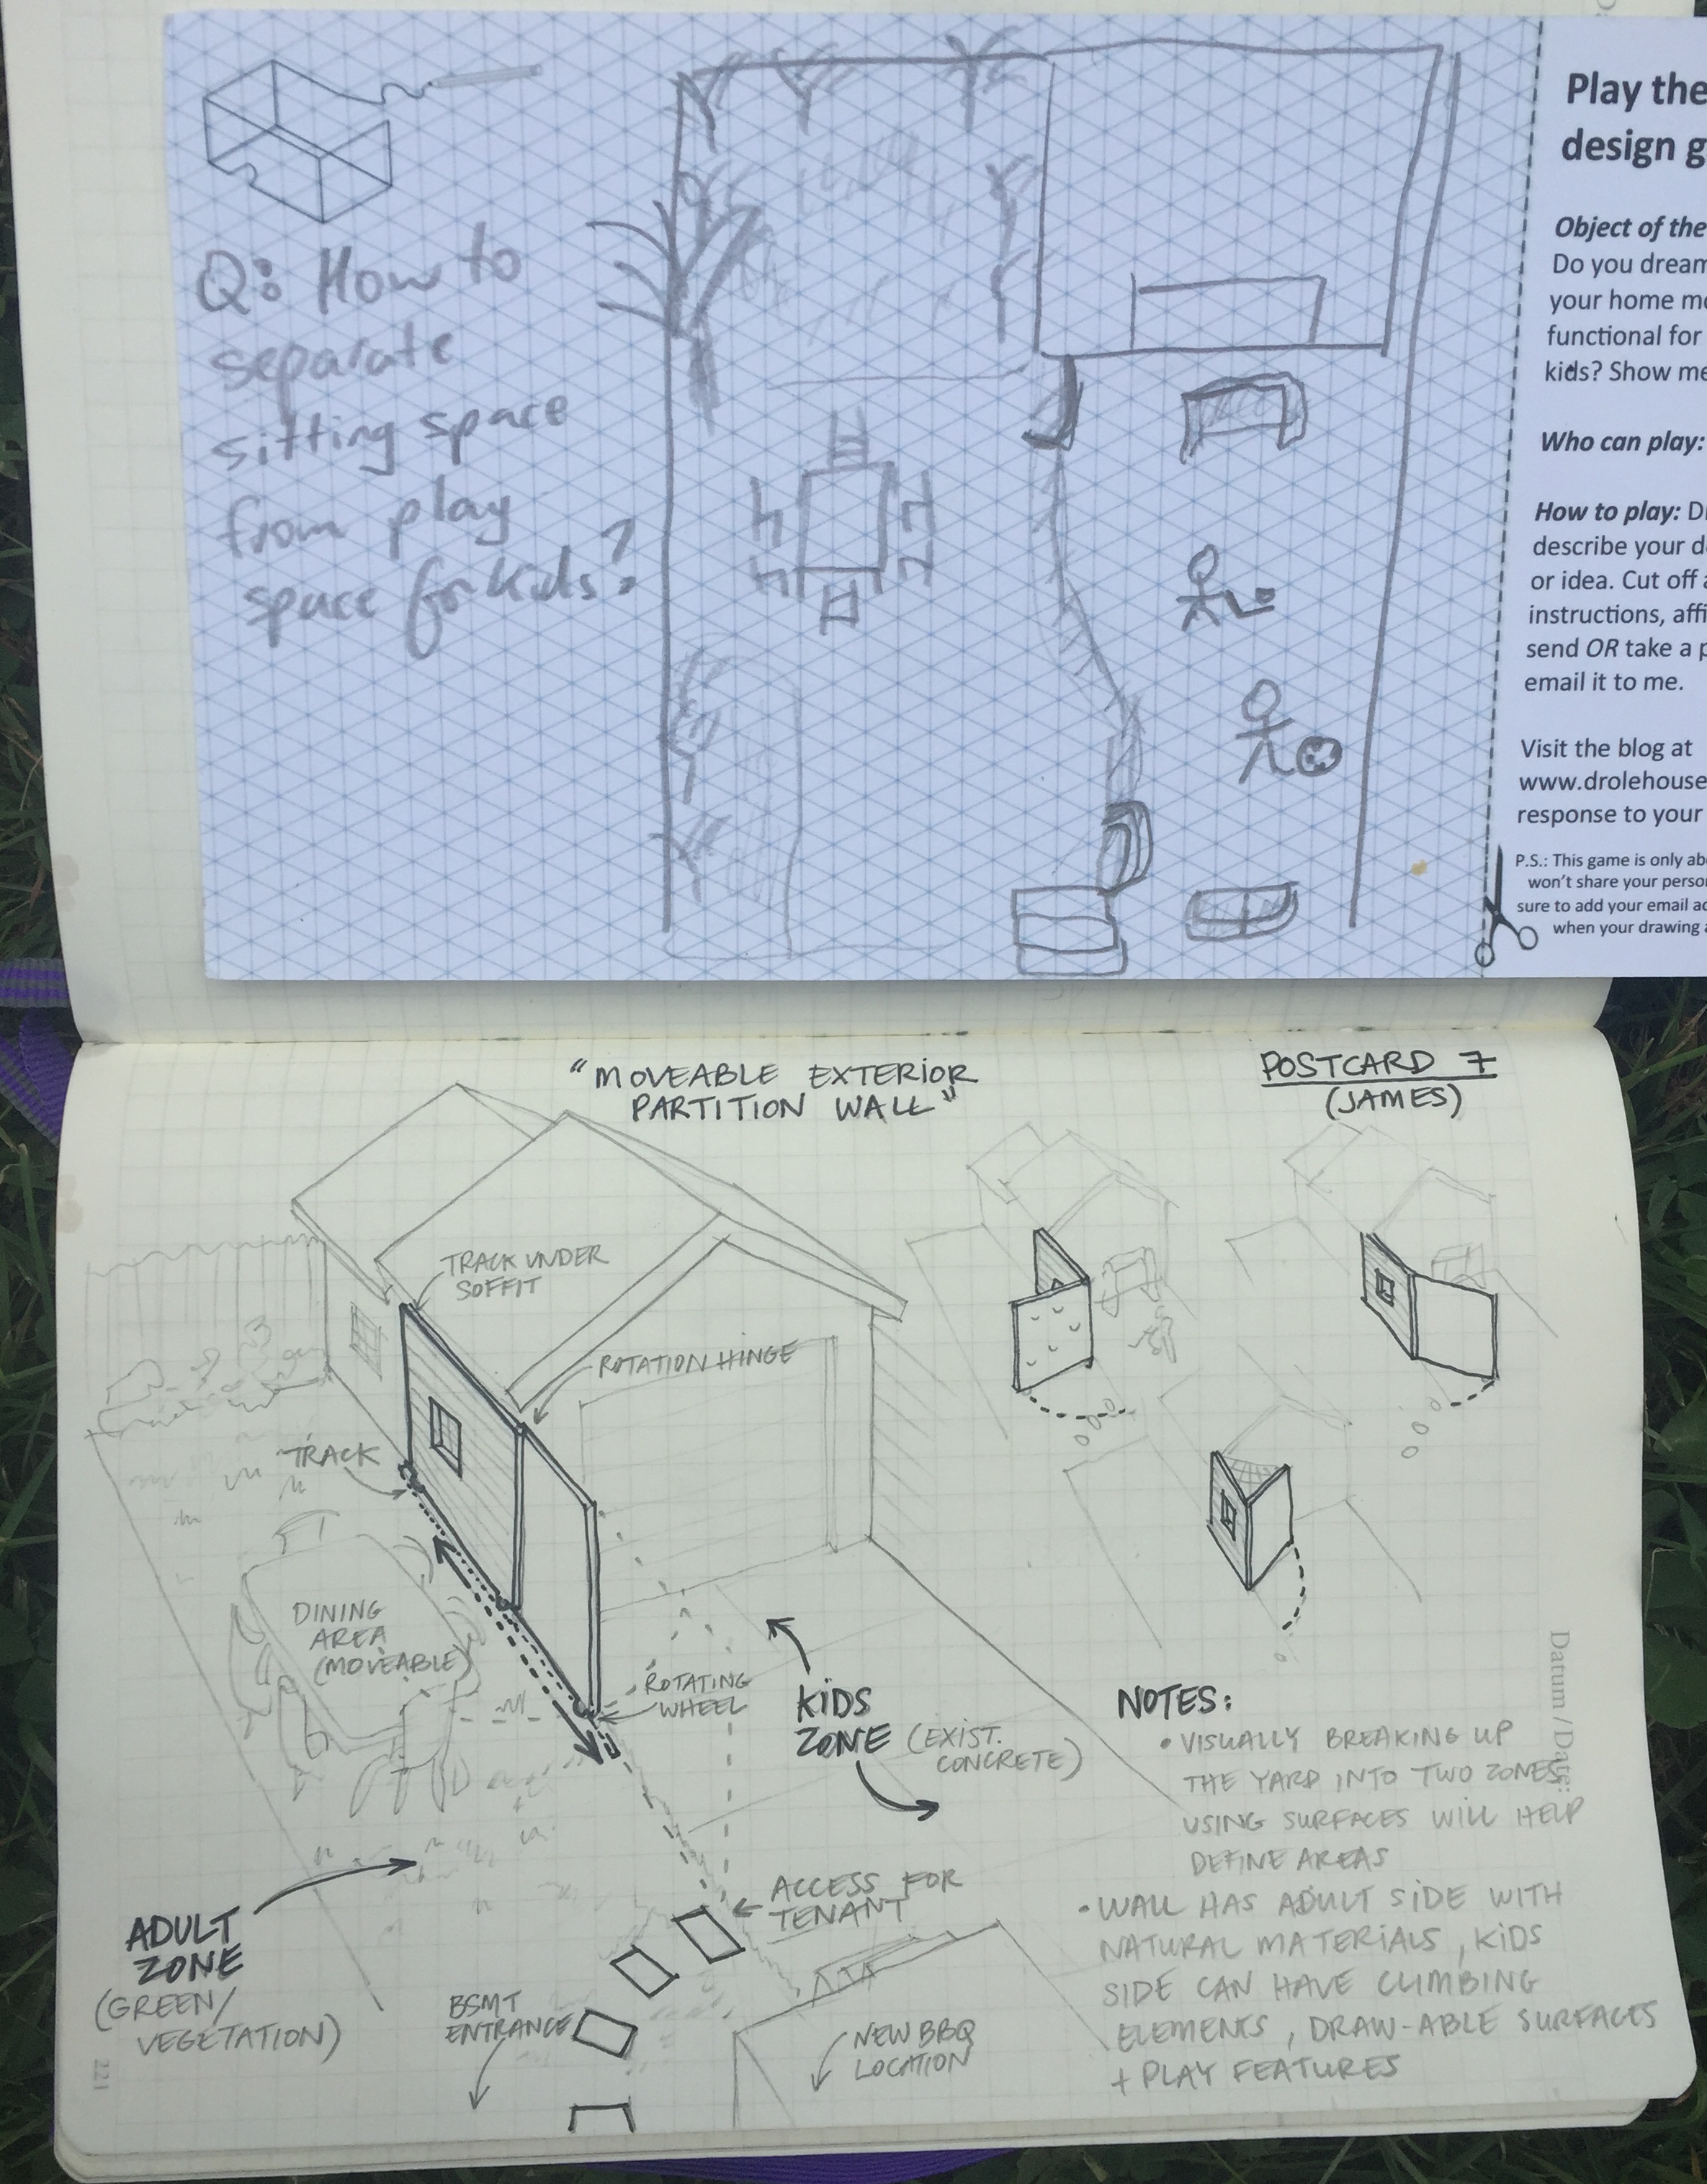 Q: How to
separate
sitting space
from play
space for kids?
Play the
design g
Object of the
Do you dream
your home mo
functional for
kids? Show me
Who can play:
How to play: D
describe your d
or idea. Cut off a
instructions, affi
send OR take a p
email it to me.
Visit the blog at
www.drolehouse
response to your
P.S.: This game is only ab
won't share your perso
sure to add your email ad
when your drawing a
"MOVEABLE EXTERIOR
PARTITION WALL"
POSTCARD 7
(JAMES)
TRACK UNDER
SOFFIT
ROTATION HINGE
TRACK
DINING
AREA
(MOVEABLE)
ROTATING
WHEEL
KIDS
ZONE (EXIST.
CONCRETE)
ADULT
ZONE
(GREEN/
VEGETATION)
ACCESS FOR
TENANT
BSMT
ENTRANCE
NEW BBQ
LOCATION
NOTES:
• VISUALLY BREAKING UP
THE YARD INTO TWO ZONES
USING SURFACES WILL HELP
DEFINE AREAS
• WALL HAS ADULT SIDE WITH
NATURAL MATERIALS, KIDS
SIDE CAN HAVE CLIMBING
ELEMENTS, DRAW-ABLE SURFACES
+ PLAY FEATURES
Datum / Date:
221